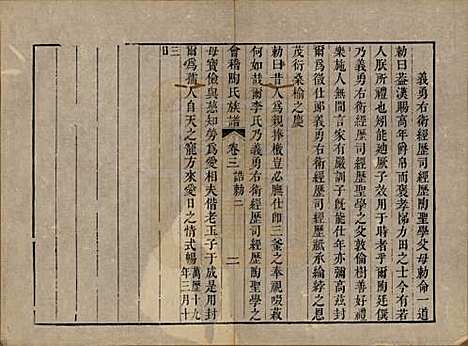 義勇右衛經歷司經歷陶聖學父母勅命一道
勅曰蓋漢賜高年爵帛而褒孝悌力田之士今有若
人朕所禮也矧能廸厥子效用于時者乎爾陶廷僎
乃義勇右衛經歷司經歷聖學之父敦倫樹善好禮
樂施人無間言家有嚴訓子旣能仕年亦彌高兹封
爾爲徵仕郎義勇右衛經歷司經歷祇承綸綍之榮
茂衍桑榆之慶
勅曰昔人爲親捧檄豈必膴仕卽三釜之奉視啜菽
何如哉爾李氏乃義勇右衛經歷司經歷陶聖學之
會稽陶氏族譜 卷三 誥勅二 二
母寶儉與慈知勞爲愛相夫偕老玉子于成是用封
爾爲孺人自天之寵方來愛日之情式暢 萬歷十九
年三月十
三日